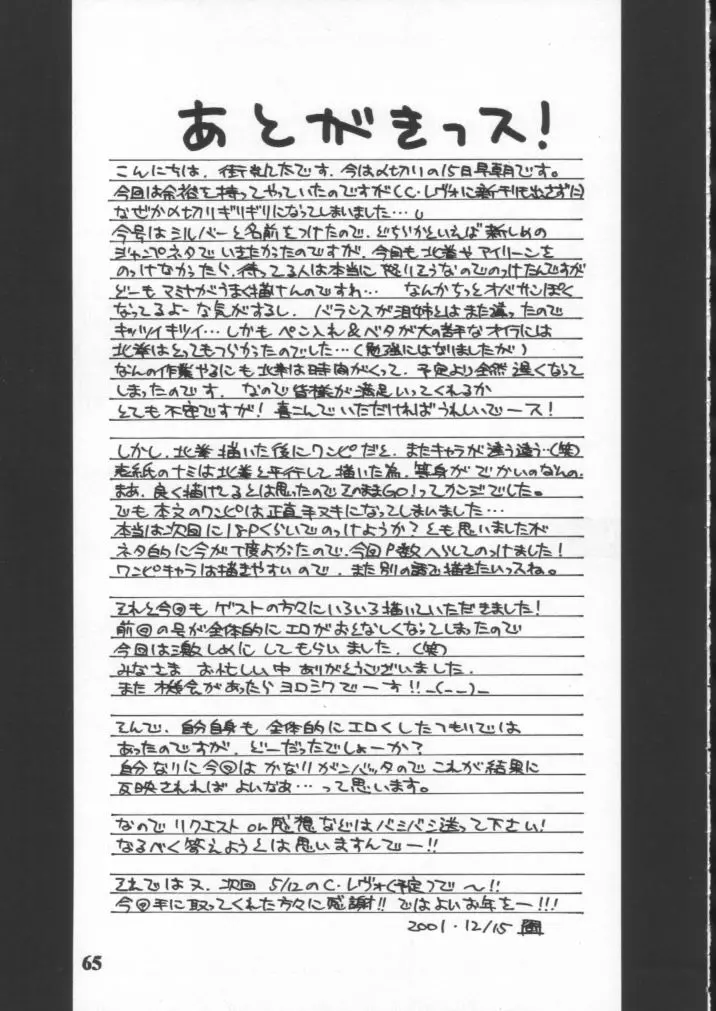 あとがきっス!
こんにちは、街乱太です。今は〆切りの15日早朝です。
今回は余裕を持ってやっていたのですが(C・レヴォに新刊も出さずに)
なぜか〆切りギリギリになってしまいました…
今号はシルバーと名前をつけたので、どちらかといえば新しめの
ジャンプネタでいきたかったのですが、今回も北斗やアイリーンを
のっけなかったら、待ってる人は本当に怒りそうなのでのっけたんですが
どーもマミヤがうまく描けんのですわ… なんかちっとオバサンぽく
なってるよーな気がするし、バランスが泪姉とはまた違ったので
キッツイキツイ…しかもペン入れ&ベタが大の苦手なオイラには
北斗はとってもつらかったのでした…(勉強にはなりましたが)
なんの作業やるにも北斗は時間がくって、予定より全然遅くなって
しまったのです。 なので皆様が満足いってくれるか
とても不安ですが!喜こんでいただければうれしいでース!
しかし、北斗描いた後にワンピだと、またキャラが違う違う…(笑)
表紙のナミは北斗と平行して描いた為、等身がでかいのなんの。
まあ、良く描けてるとは思ったのでそのままGO!ってカンジでした。
でも本文のワンピは正直手ヌキになってしまいました…
本当は次回に18Pくらいでのっけようか?とも思いましたが
ネタ的に今が丁度よかったので、今回P数へらしてのっけました!
ワンピキャラは描きやすいので、また別の話で描きたいっスね。
それと今回も ゲストの方々にいろいろ描いていただきました!
前回の号が全体的にエロがおとなしくなってしまったので
今回は激しめに してもらいました、(笑)
みなさま お忙しい中 ありがとうございました、
また 機会があったら ヨロシクでーす!!_(_ _)_
そんで、自分自身も 全体的にエロくしたつもいでは
あったのですが、どーだったでしょーか?
自分なりに今回は かなりガンバッタので これが結果に
反映されれば よいなあ…って思います。
なので リクエスト or 感想などはバシバシ送って下さい!
なるべく答えようとは思いますんでー!!
それではまた、次回 5/12のC・レヴォ(予定)で〜!!
今回手に取ってくれた方々に感謝!! ではよいお年をー!!!
2001・12/15
65